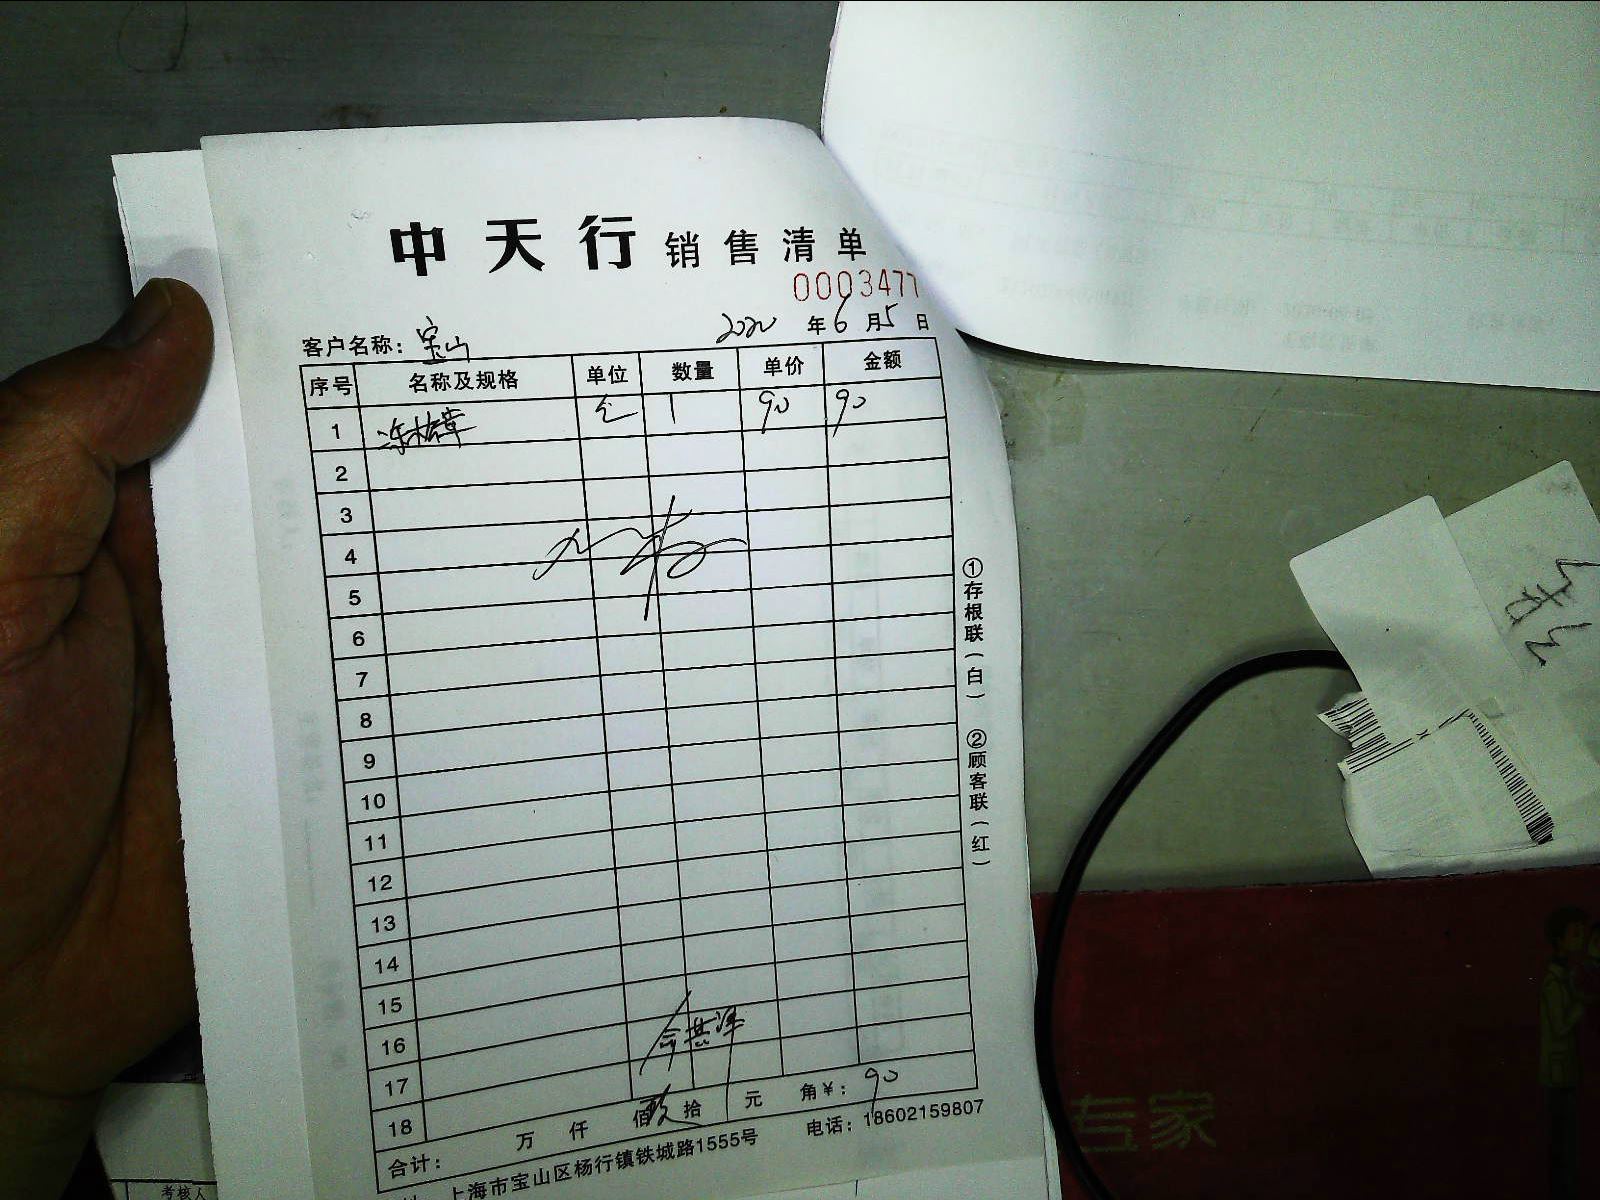 中天行 销售清单
0003477
2020 年 6 月 5 日
客户名称: 宝山
序号 名称及规格 单位 数量 单价 金额
1 1 90 90
2
3
4
5
6
7
8
9
10
11
12
13
14
15
16
17
18
合计: 万 仟 佰 玖 拾 元 角 ¥: 90
上海市宝山区杨行镇铁城路1555号 电话: 18602159807
①存根联(白) ②顾客联(红)
专家
考核人